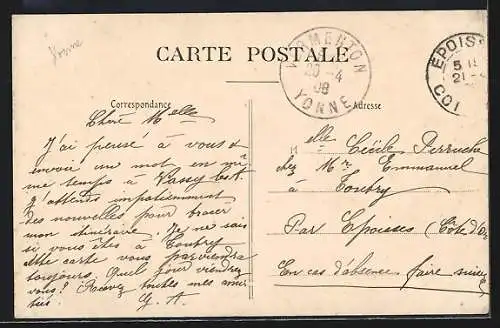 Yonne
CARTE POSTALE
VERMENTON
20 -4
08
YONNE
EPOISS
21
COT
Correspondance
Adresse
Chère Melle
J'ai pensé à vous et
envoie un mot en mê
me temps à Vassy. Et
J'attends impatiemment
des nouvelles pour tracer
mon itinéraire. Je ne sais
si vous êtes à Toutry
cette carte vous parviendra
toujours. Quel jour viendrez
vous? Recevez toutes mes ami
tiés. G. A.
Melle Cécile Perruche
chez Mr Emmanuel
à Toutry
Par Epoisses (Côte d'Or
En cas d'absence faire suivre